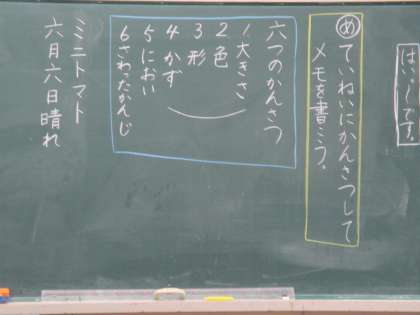 はい、〜です。
め ていねいにかんさつして
メモを書こう。
六つのかんさつ
1大きさ
2色
3形
4かず
5におい
6さわったかんじ
ミニトマト
六月六日晴れ